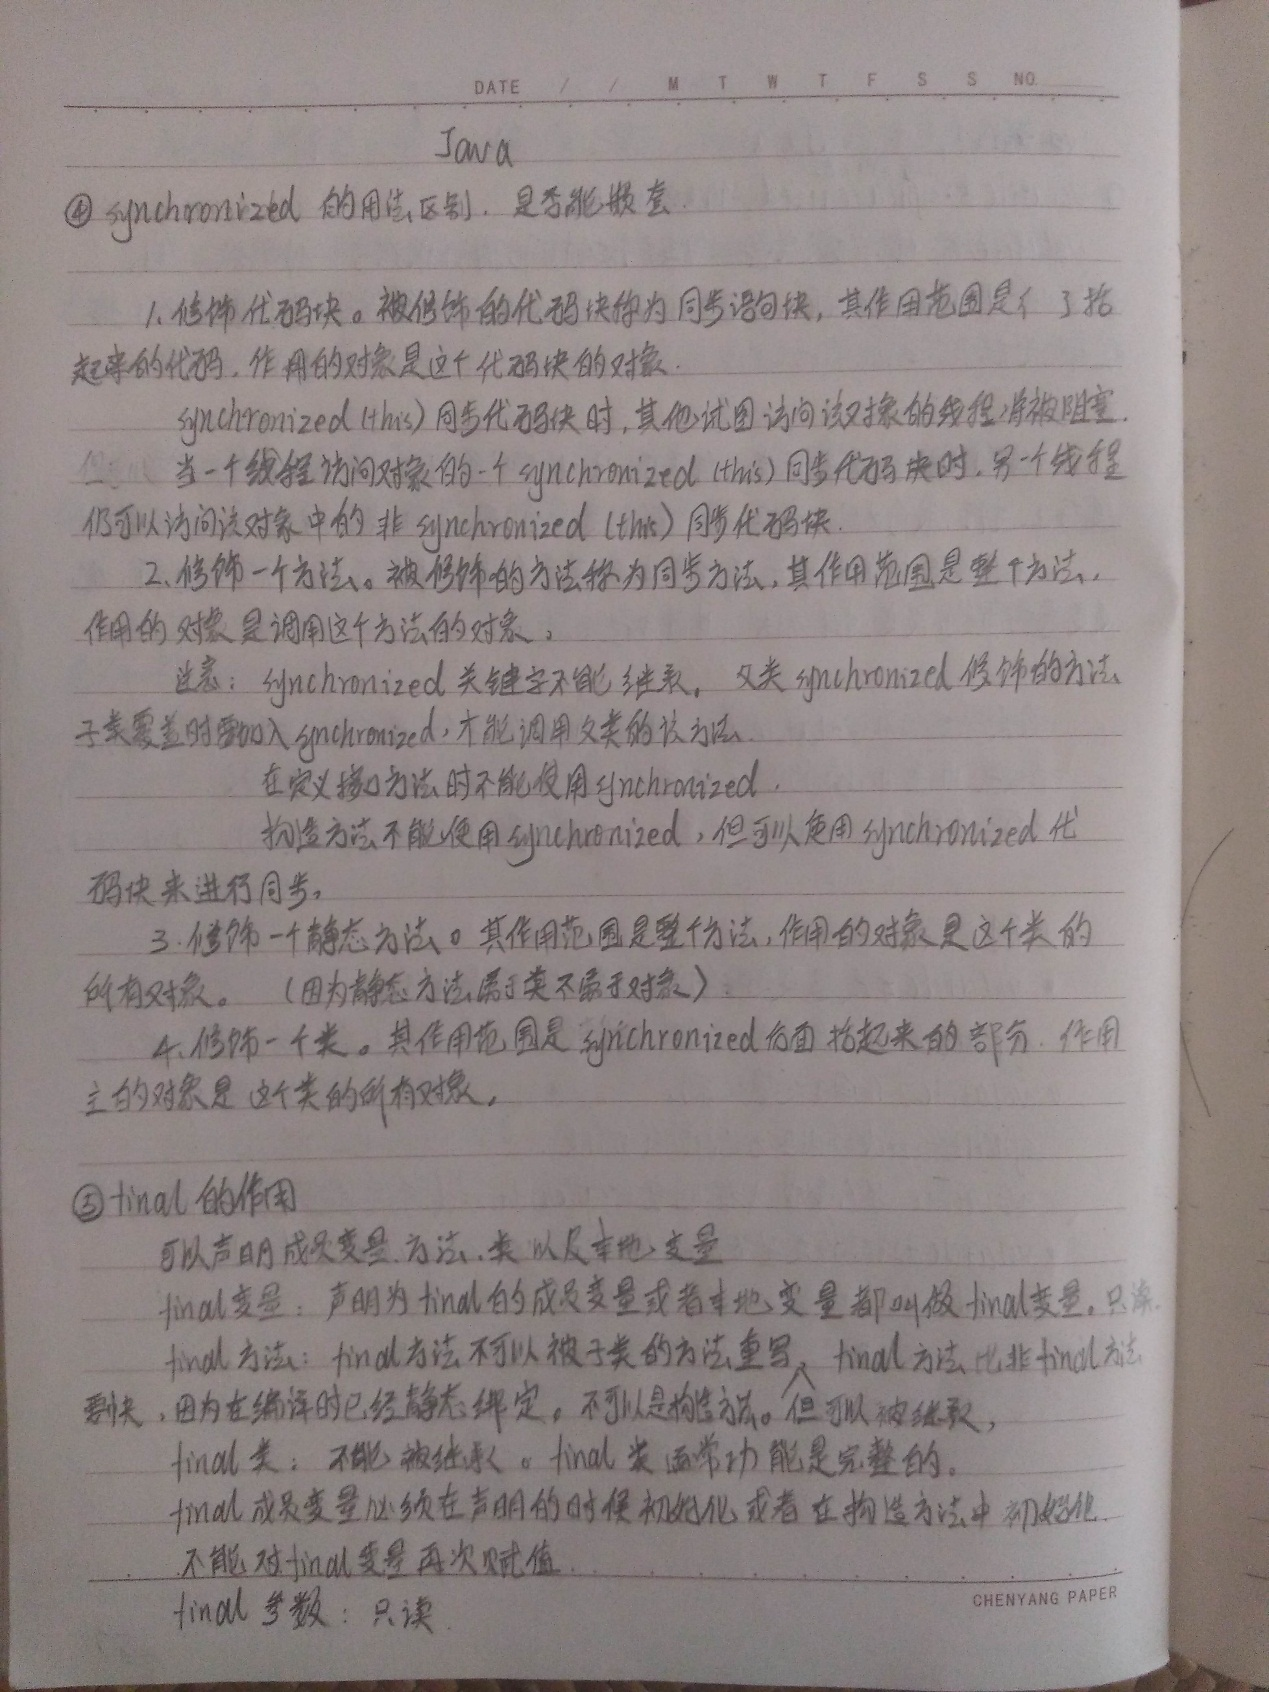 DATE / / M T W T F S S NO.
Java
④ synchronized 的用法区别. 是否能嵌套.
1、修饰代码块。被修饰的代码块称为同步语句块, 其作用范围是{ }括
起来的代码, 作用的对象是这个代码块的对象.
synchronized (this) 同步代码块时, 其他试图访问该对象的线程将被阻塞.
当一个线程访问对象的一个 synchronized (this) 同步代码块时, 另一个线程
仍可以访问该对象中的非 synchronized (this) 同步代码块.
2、修饰一个方法。被修饰的方法称为同步方法, 其作用范围是整个方法,
作用的对象是调用这个方法的对象。
注意: synchronized 关键字不能继承, 父类 synchronized 修饰的方法
子类覆盖时要加入 synchronized, 才能调用父类的该方法.
在定义接口方法时不能使用 synchronized.
构造方法不能使用 synchronized, 但可以使用 synchronized 代
码块来进行同步。
3.修饰一个静态方法。其作用范围是整个方法, 作用的对象是这个类的
所有对象。 (因为静态方法属于类不属于对象)
4、修饰一个类。其作用范围是 synchronized 后面括起来的部分. 作用
主的对象是这个类的所有对象。
⑤ final 的作用
可以声明成员变量、方法、类以及本地变量
final变量: 声明为 final 的成员变量或者本地变量都叫做 final变量。只读.
final 方法: final方法不可以被子类的方法重写, final 方法比非final方法
要快, 因为在编译时已经静态绑定。不可以是构造方法。但可以被继承,
final 类: 不能被继承。final 类通常功能是完整的。
final 成员变量必须在声明的时候初始化或者在构造方法中初始化.
不能对final变量再次赋值.
final 参数: 只读.
CHENYANG PAPER